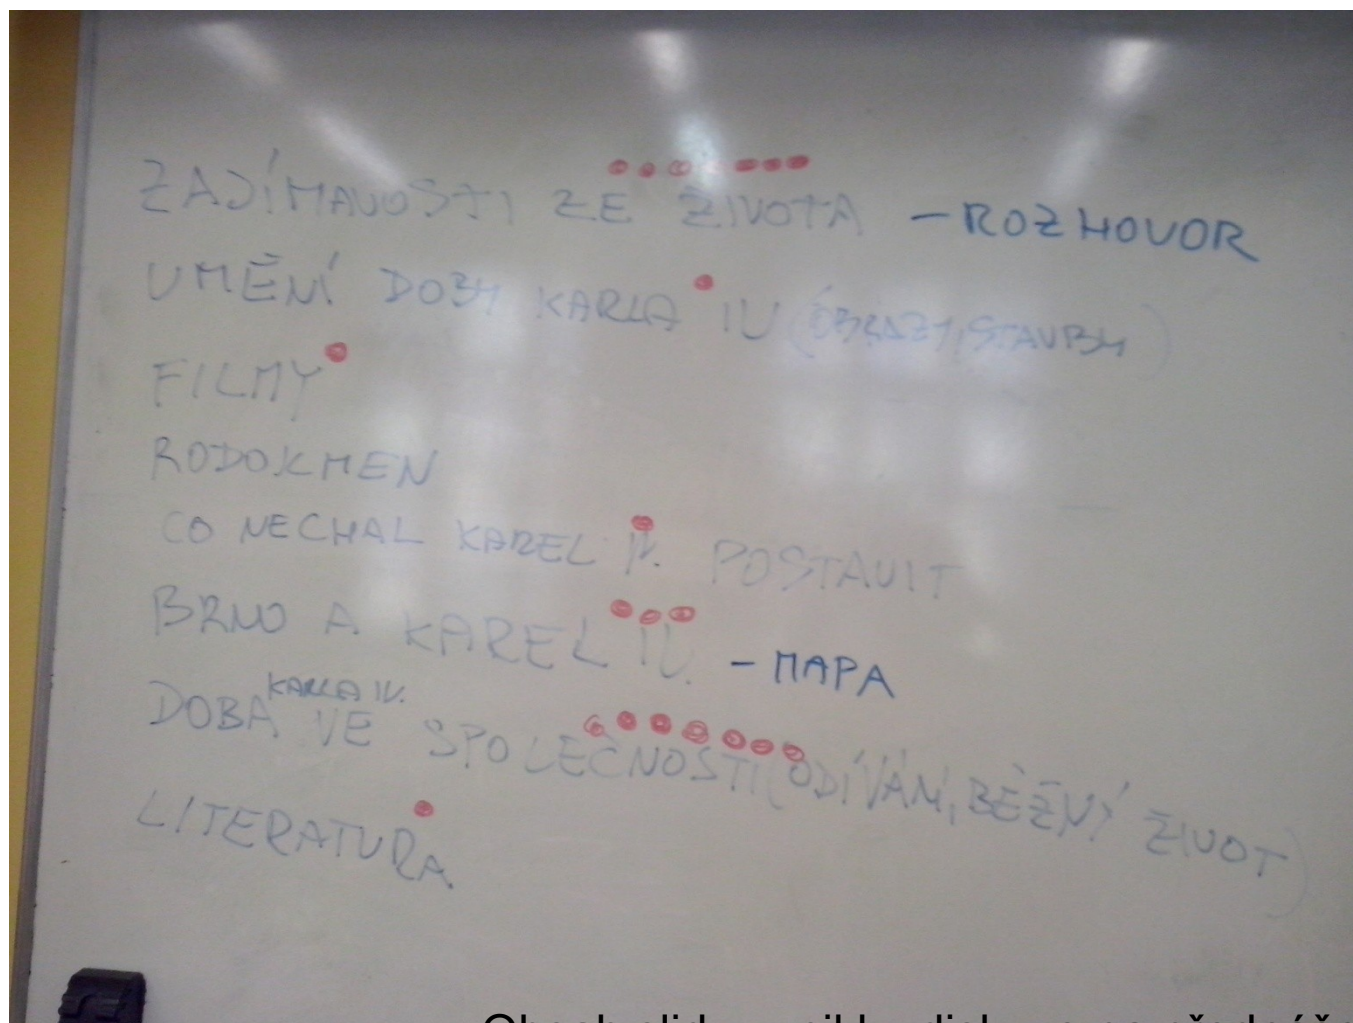 ZAJÍMAVOSTI ZE ŽIVOTA – ROZHOVOR
UMĚNÍ DOBY KARLA IV (OBRAZY, STAVBY)
FILMY
RODOKMEN
CO NECHAL KAREL IV. POSTAVIT
BRNO A KAREL IV. – MAPA
DOBA KARLA IV. VE SPOLEČNOSTI (ODÍVÁNÍ, BĚŽNÝ ŽIVOT)
LITERATURA